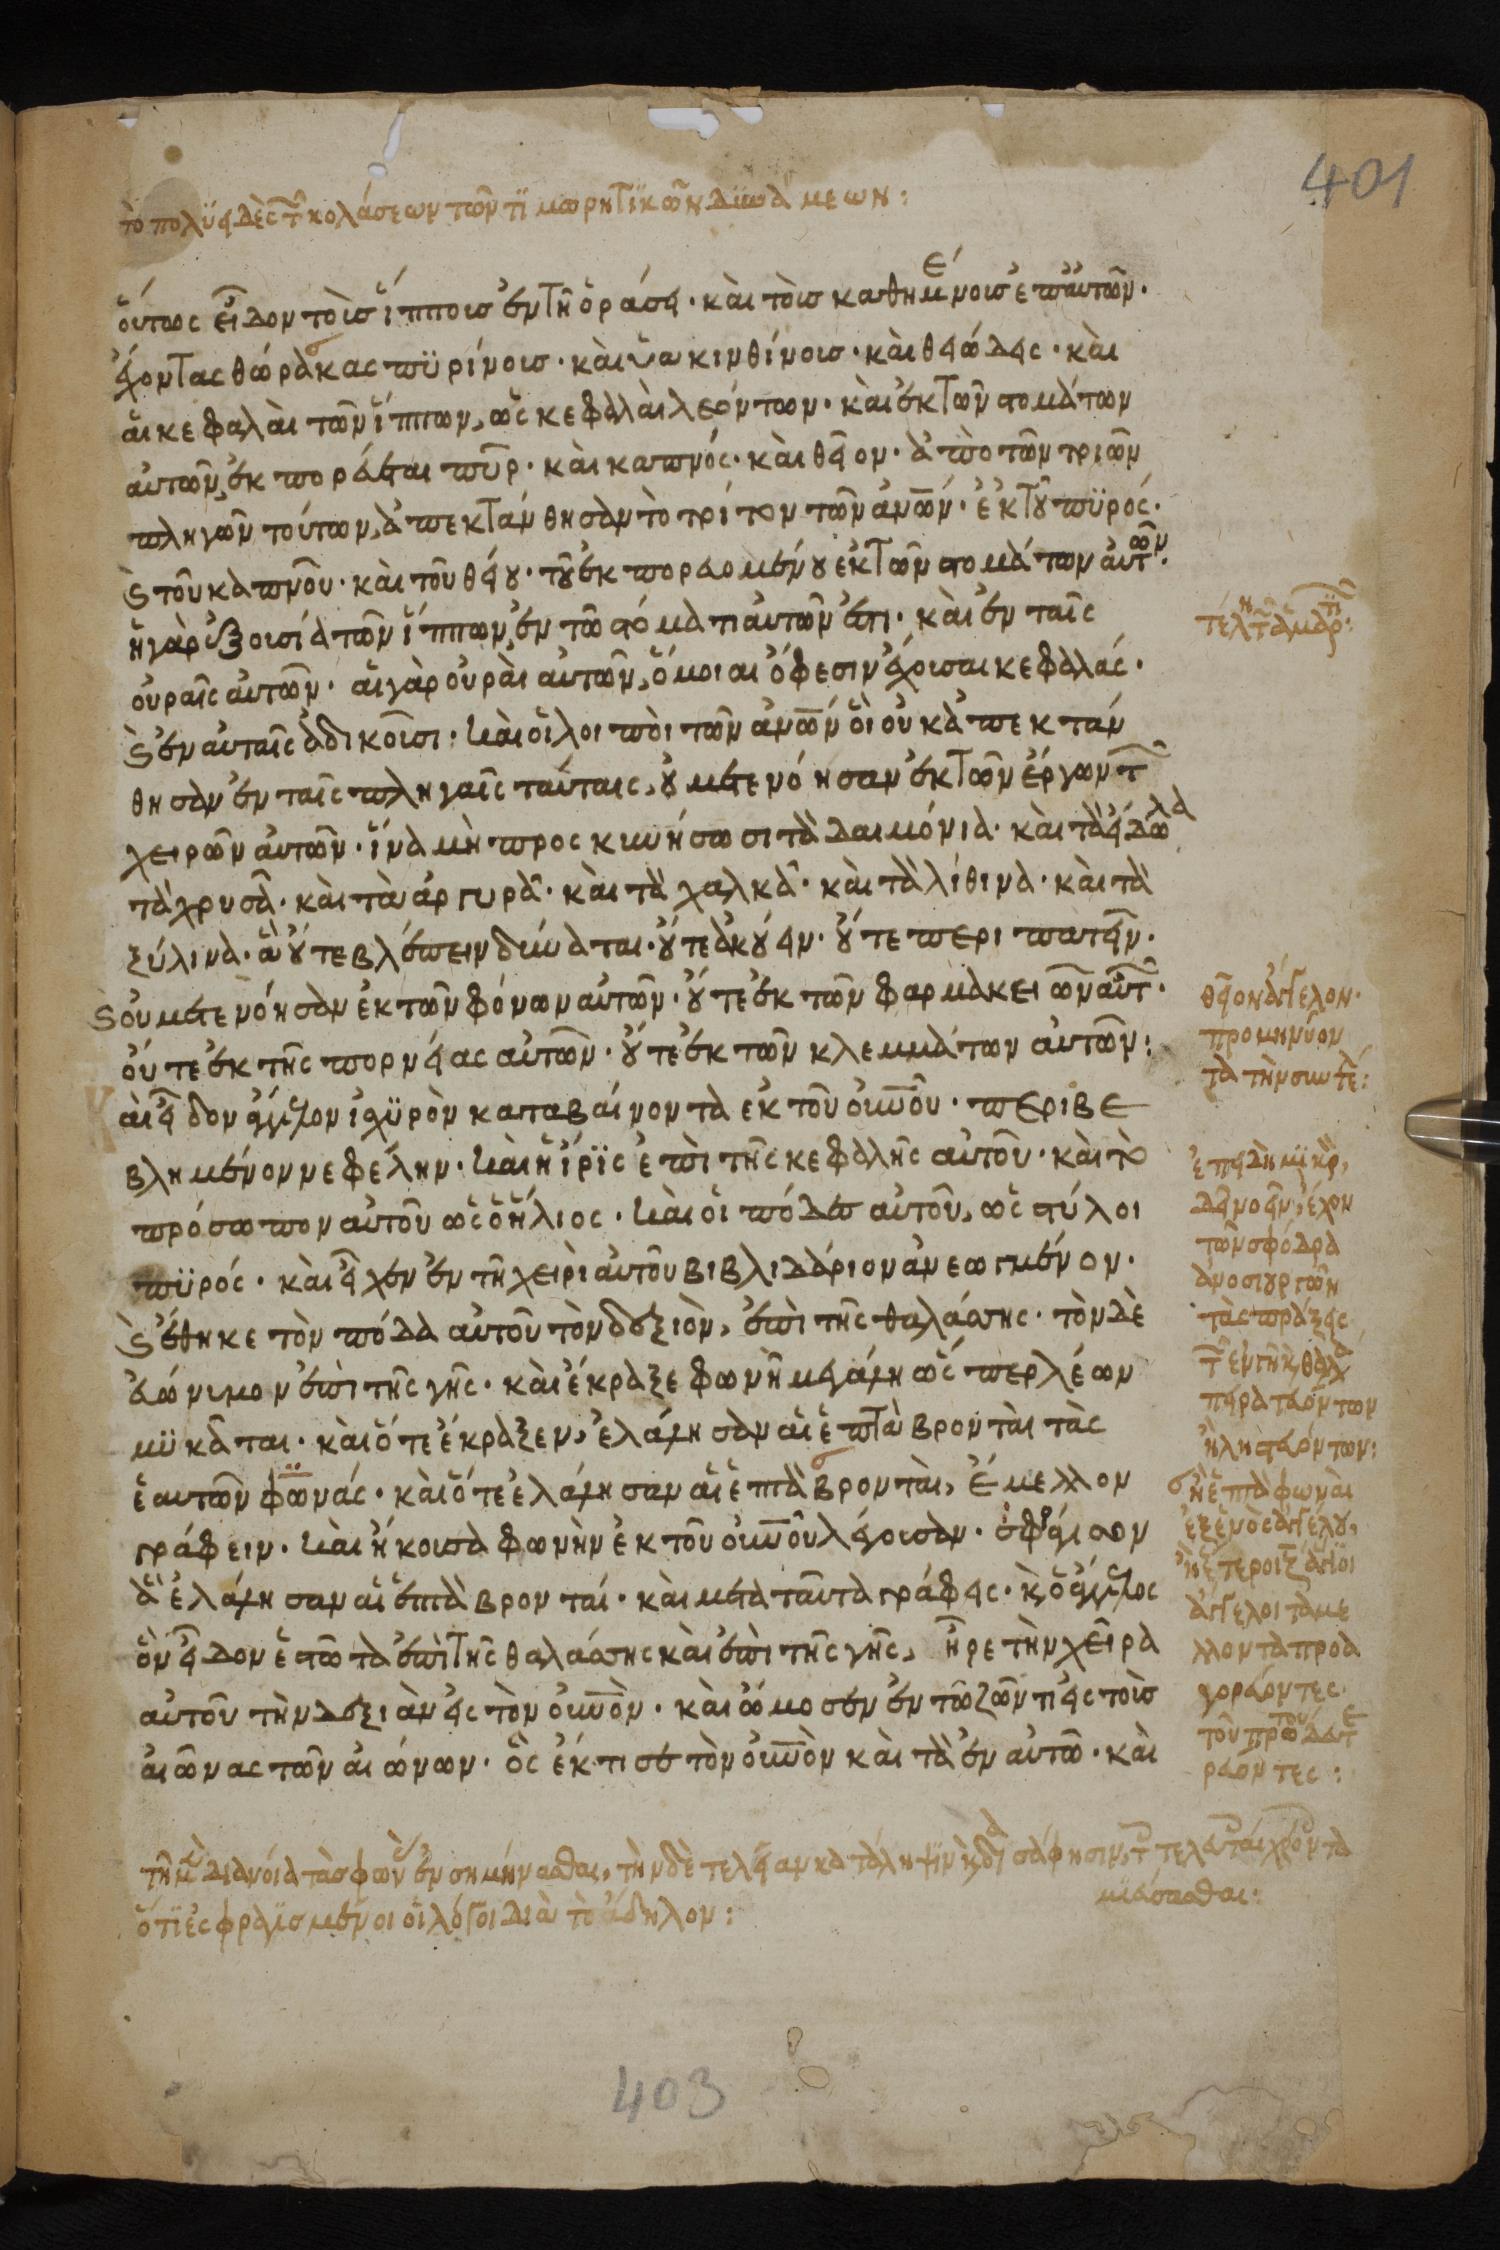 401
τὸ πολϋειδὲς τῶν κολάσεων τῶν τϊμωρητϊκῶν δϋνάμεων:
οὕτως εἶδον τοὶσ ἵπποισ ἐν τῆ ὁράσει· καὶ τοὶσ καθημένοισ ἐπαὐτῶν·
ἔχοντας θώρακας πϋρίνοισ· καὶ ὑακινθίνοισ· καὶ θειώδεις· καὶ
αἱ κεφαλαὶ τῶν ἵππων, ὡς κεφαλαὶ λεόντων· καὶ ἐκ τῶν στομάτων
αὐτῶν, ἐκπορεύεται πῦρ· καὶ καπνός· καὶ θεῖον· ἀπὸ τῶν τριῶν
πληγῶν τούτων, ἀπεκτάνθησαν τὸ τρίτον τῶν ἀνῶν· ἐκ τοῦ πϋρός·
καὶ τοῦ καπνοῦ· καὶ τοῦ θείου· τοῦ ἐκπορευομένου ἐκ τῶν στομάτων αὐτῶν·
ἡ γὰρ ἐξουσία τῶν ἵππων, ἐν τῶ στόματι αὐτῶν ἐστι· καὶ ἐν ταῖς
οὐραῖς αὐτῶν· αἱ γὰρ οὐραὶ αὐτῶν, ὅμοιαι ὄφεσιν ἔχουσαι κεφαλάς·
καὶ ἐν αὐταῖς ἀδικοῦσι: καὶ οἱ λοιποὶ τῶν ἀνῶν οἳ οὐκ ἀπεκταν
θησαν ἐν ταῖς πληγαῖς ταύταις, οὐ μετενόησαν ἐκ τῶν ἔργων τῶν
χειρῶν αὐτῶν· ἵνα μὴ προσκυνήσωσι τὰ δαιμόνια· καὶ τὰ εἴδωλα
τὰ χρυσᾶ· καὶ τὰ ἀργυρᾶ· καὶ τὰ χαλκᾶ· καὶ τὰ λίθινα· καὶ τὰ
ξύλινα· ἃ οὔτε βλέπειν δύναται· οὔτε ἀκούειν· οὔτε περιπατεῖν·
καὶ οὐ μετενόησαν ἐκ τῶν φόνων αὐτῶν· οὔτε ἐκ τῶν φαρμακειῶν αὐτῶν·
οὔτε ἐκ τῆς πορνείας αὐτῶν· οὔτε ἐκ τῶν κλεμμάτων αὐτῶν:
Καὶ εἶδον ἄγγελον ἰσχϋρὸν καταβαίνοντα ἐκ τοῦ οὐνοῦ· περιβε
βλημένον νεφέλην· καὶ ἡ ἶρϊς ἐπὶ τῆς κεφαλῆς αὐτοῦ· καὶ τὸ
πρόσωπον αὐτοῦ ὡς ὁ ἥλιος· καὶ οἱ πόδες αὐτοῦ, ὡς στύλοι
πϋρός· καὶ εἶχεν ἐν τῆ χειρὶ αὐτοῦ βιβλιδάριον ἀνεωγμένον·
καὶ ἔθηκε τὸν πόδα αὐτοῦ τὸν δεξιὸν, ἐπὶ τῆς θαλάσσης· τὸν δὲ
εὐώνυμον ἐπὶ τῆς γῆς· καὶ ἔκραξε φωνῆ μεγάλη ὥς περ λέων
μϋκᾶται· καὶ ὅτε ἔκραξεν, ἐλάλησαν αἱ ἑπτὰ βρονταὶ τὰς
ἑαυτῶν φωνάς· καὶ ὅτε ἐλάλησαν αἱ ἑπτὰ βρονταὶ, ἔμελλον
γράφειν· καὶ ἤκουσα φωνὴν ἐκ τοῦ οὐνοῦ λέγουσαν· σφράγισον
ἃ ἐλάλησαν αἱ ἑπτὰ βρονταί· καὶ μετὰ ταῦτα γράφεις· καὶ ὁ ἄγγελος
ὃν εἶδον ἑστῶτα ἐπὶ τῆς θαλάσσης καὶ ἐπὶ τῆς γῆς, ἦρε τὴν χεῖρα
αὐτοῦ τὴν δεξιὰν εἰς τὸν οὐνὸν· καὶ ὤμοσεν ἐν τῶ ζῶντι εἰς τοὺσ
αἰῶνας τῶν αἰώνων· ὃς ἔκτισε τὸν οὐνὸν καὶ τὰ ἐν αὐτῶ· καὶ
θεῖον ἄγγελον·
προμηνύον
τα τὴν συντέ:
ἐπειδὴ
τῶν σφόδρα
ἀνοσιουργῶν
τὰς πράξεις
τῶν ἐν γῆ καὶ θαλα
ληστευόντων:
ἢ ἑπτὰ φωναὶ
ἐξ ἑνὸς ἀγγέλου,
ἢ ἕτεροι ἑπτὰ
ἄγγελοι τὰ με
λλοντα προα
γορεύοντες·
τοῦ πρώτου δευτε
ρεύοντες:
ὅτϊ ἐσφραγϊσμένοι οἱ λόγοι διὰ τὸ ἄδηλον:
403